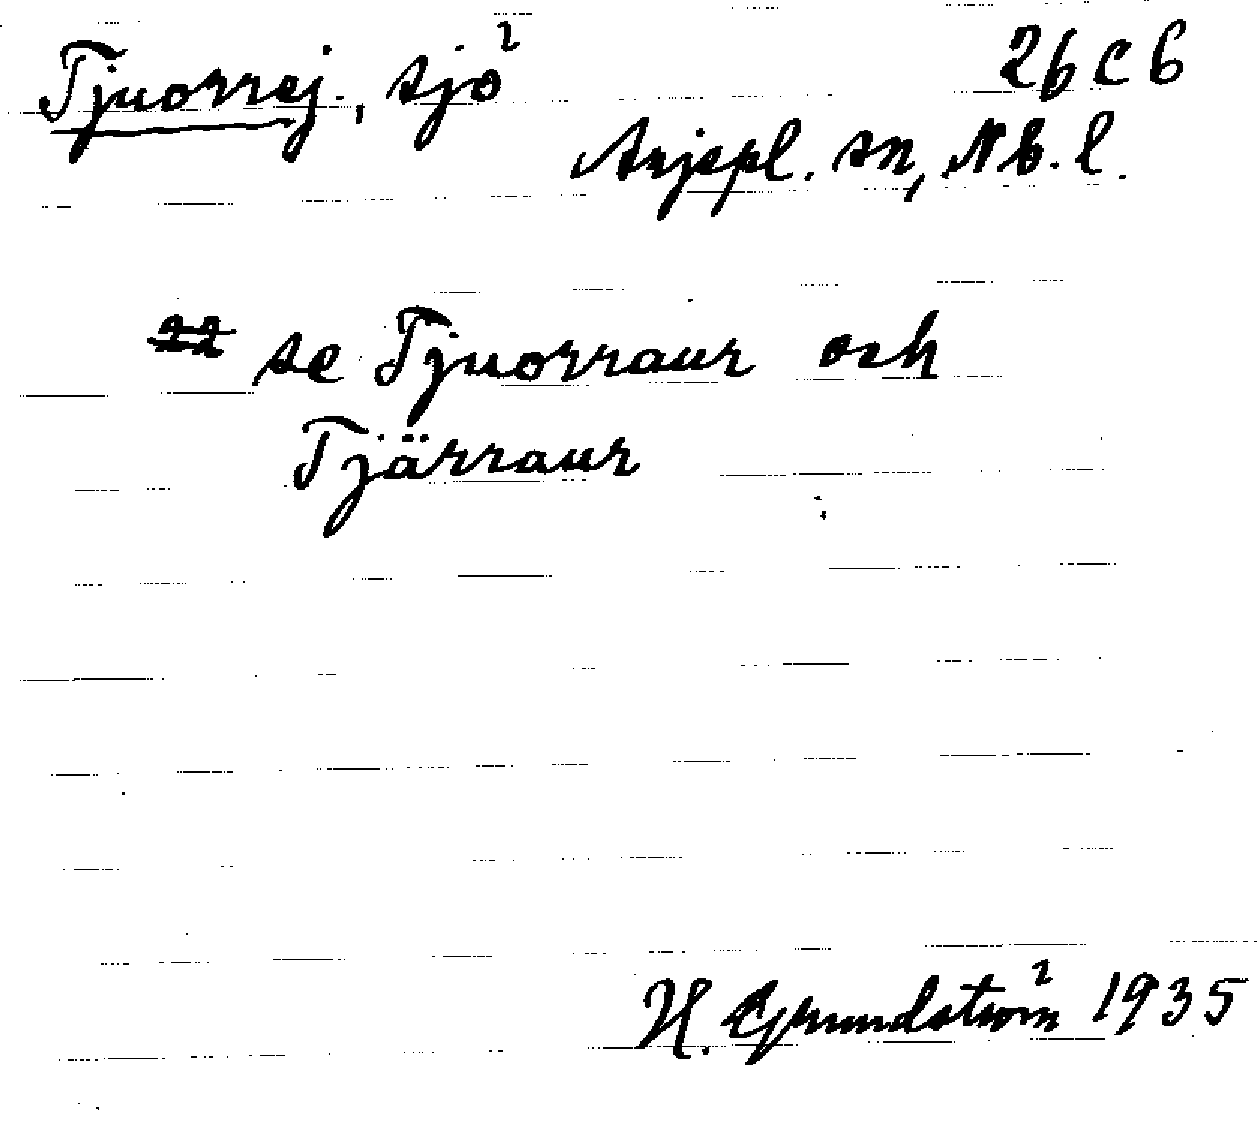 Tjuorrej., sjö 26 c 6
Arjepl. sn, Nb. l.
se Tjuorraur och
Tjärraur
H. Grundström 1935